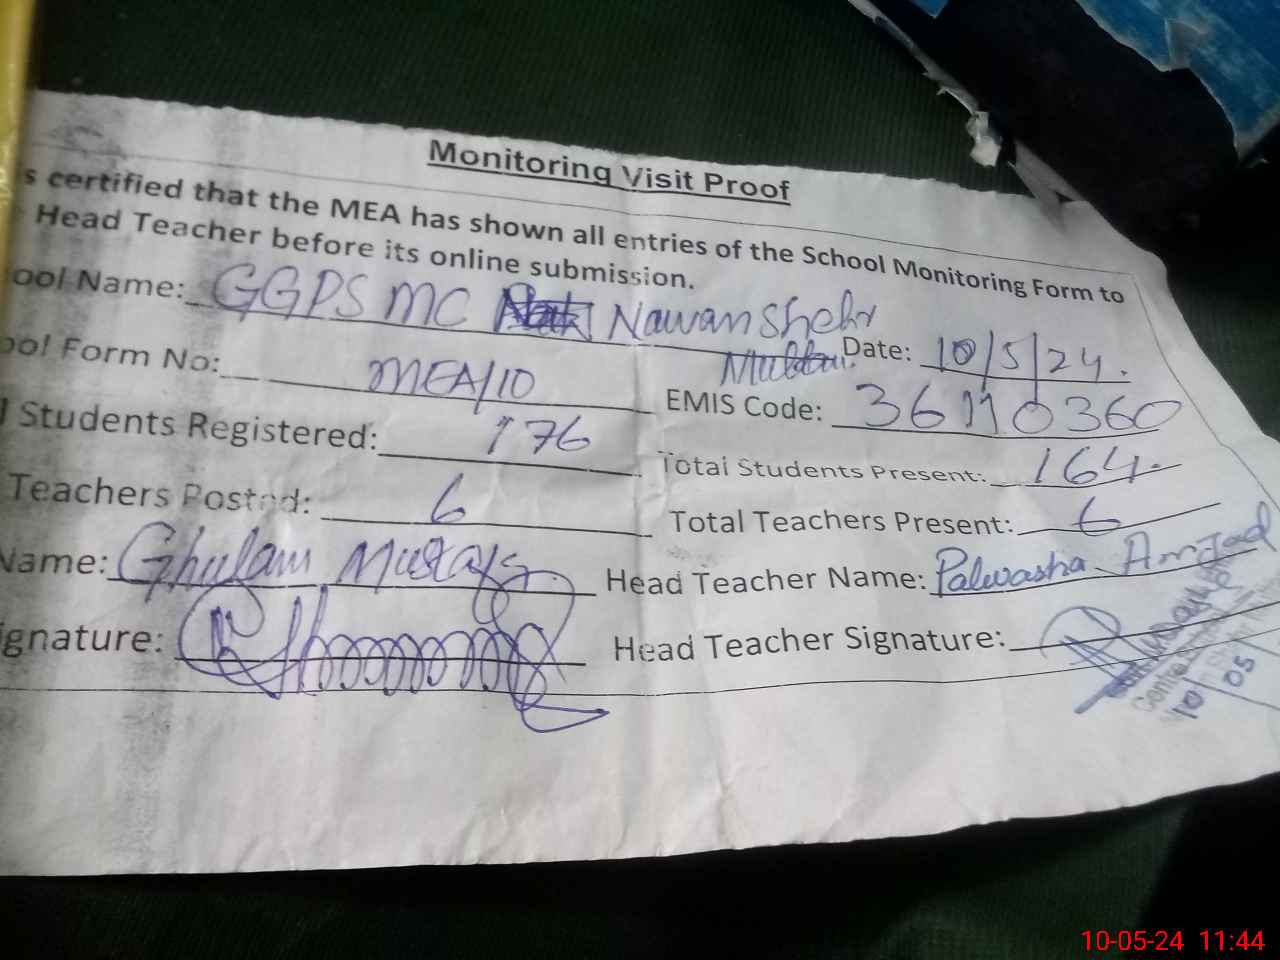 Monitoring Visit Proof
s certified that the MEA has shown all entries of the School Monitoring Form to
Head Teacher before its online submission.
ool Name: GGPS MC Nawan Shehr
Multan Date: 10/5/24.
ool Form No: MEA/10 EMIS Code: 36110360
l Students Registered: 176 Total Students Present: 164.
Teachers Posted: 6 Total Teachers Present: 6
Name: Ghulam Mustafa Head Teacher Name: Palwasha Amjad
ignature: Head Teacher Signature:
10 05
10-05-24 11:44